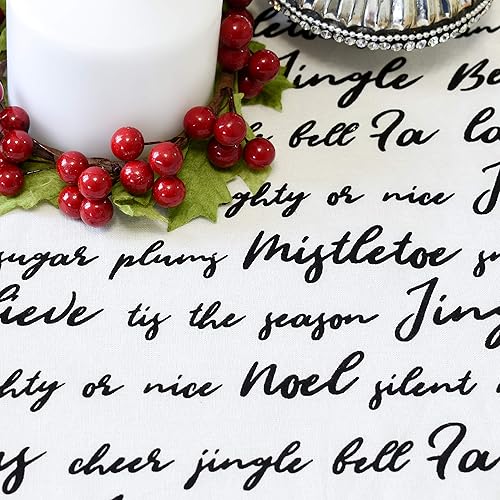 Jingle Be
bell Fa la
ghty or nice J
sugar plums Mistletoe s
lieve tis the season Jing
ghty or nice Noel silent n
cheer jingle bell Fa